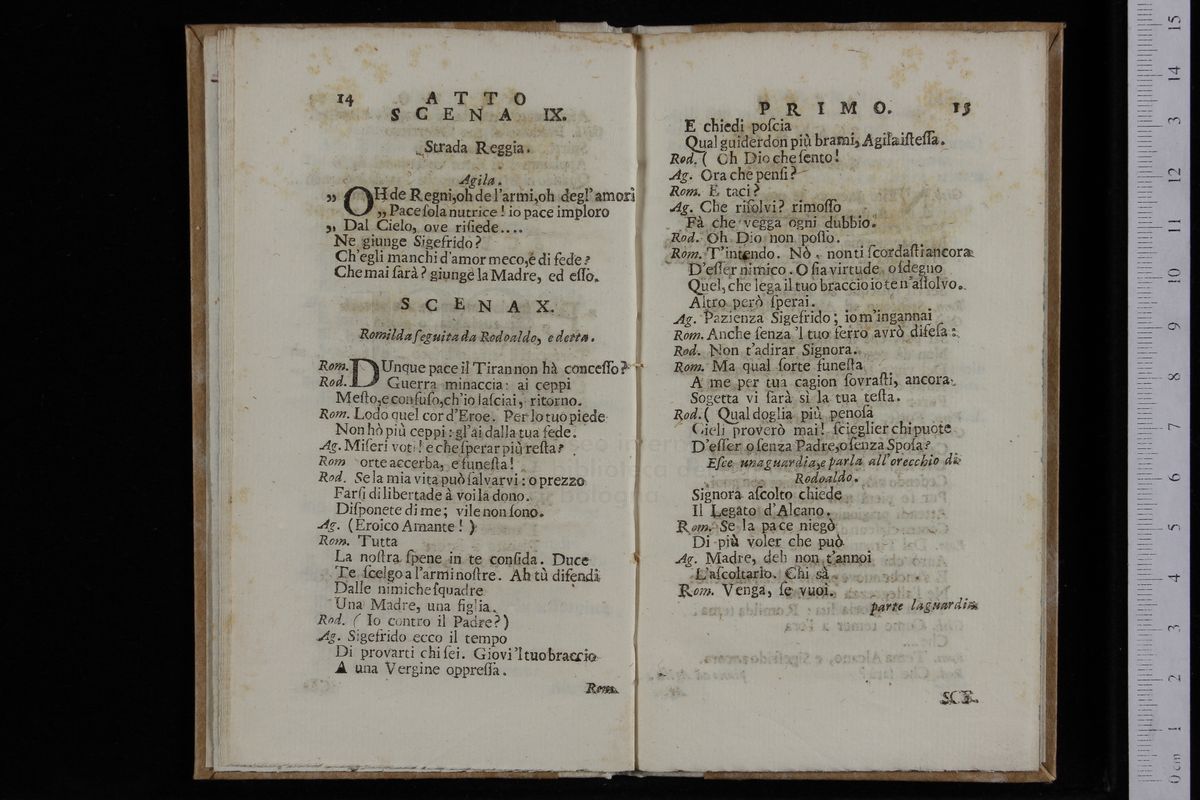 14 ATTO
SCENA IX.
Strada Reggia.
Agila.
„ OH de Regni, oh de l'armi, oh degl' amori
„ Pace sola nutrice! io pace imploro
„ Dal Cielo, ove risiede....
Ne giunge Sigefrido?
Ch'egli manchi d'amor meco, è di fede?
Che mai sarà? giunge la Madre, ed esso.
SCENA X.
Romilda seguita da Rodoaldo, e detta.
Rom. DUnque pace il Tiran non hà concesso?
Rod. Guerra minaccia: ai ceppi
Mesto, e confuso, ch'io lasciai, ritorno.
Rom. Lodo quel cor d'Eroe. Per lo tuo piede
Non hò più ceppi: gl'ai dalla tua fede.
Ag. Miseri voti! e che sperar più resta?
Rom orte accerba, e funesta!
Rod. Se la mia vita può salvarvi: o prezzo
Farsi di libertade à voi la dono.
Disponete di me; vile non sono.
Ag. (Eroico Amante!)
Rom. Tutta
La nostra spene in te confida. Duce
Te scelgo a l'armi nostre. Ah tù difendi
Dalle nimiche squadre
Una Madre, una figlia.
Rod. (Io contro il Padre?)
Ag. Sigefrido ecco il tempo
Di provarti chi sei. Giovi 'l tuo braccio
A una Vergine oppressa.
Rom.
PRIMO. 15
E chiedi poscia
Qual guiderdon più brami, Agila istessa.
Rod. ( Oh Dio che sento!
Ag. Ora che pensi?
Rom. E taci?
Ag. Che risolvi? rimosso
Fà che vegga ogni dubbio.
Rod. Oh Dio non posso.
Rom. T'intendo. Nò, non ti scordasti ancora
D'esser nimico. O sia virtude, o sdegno
Quel, che lega il tuo braccio io te n'assolvo.
Altro però sperai.
Ag. Pazienza Sigefrido; io m'ingannai
Rom. Anche senza 'l tuo ferro avrò difesa:
Rod. Non t'adirar Signora.
Rom. Ma qual sorte funesta
A me per tua cagion sovrasti, ancora
Sogetta vi sarà sì la tua testa.
Rod. ( Qual doglia più penosa
Cieli proverò mai! scieglier chi puote
D'esser o senza Padre, o senza Sposa?
Esce una guardia, e parla all'orecchio di
Rodoaldo.
Signora ascolto chiede
Il Legato d'Alcano.
Rom. Se la pace niegò
Di più voler che può
Ag. Madre, deh non t'annoi
L'ascoltarlo. Chi sà
Rom. Venga, se vuoi.
parte la guardia
SCE.